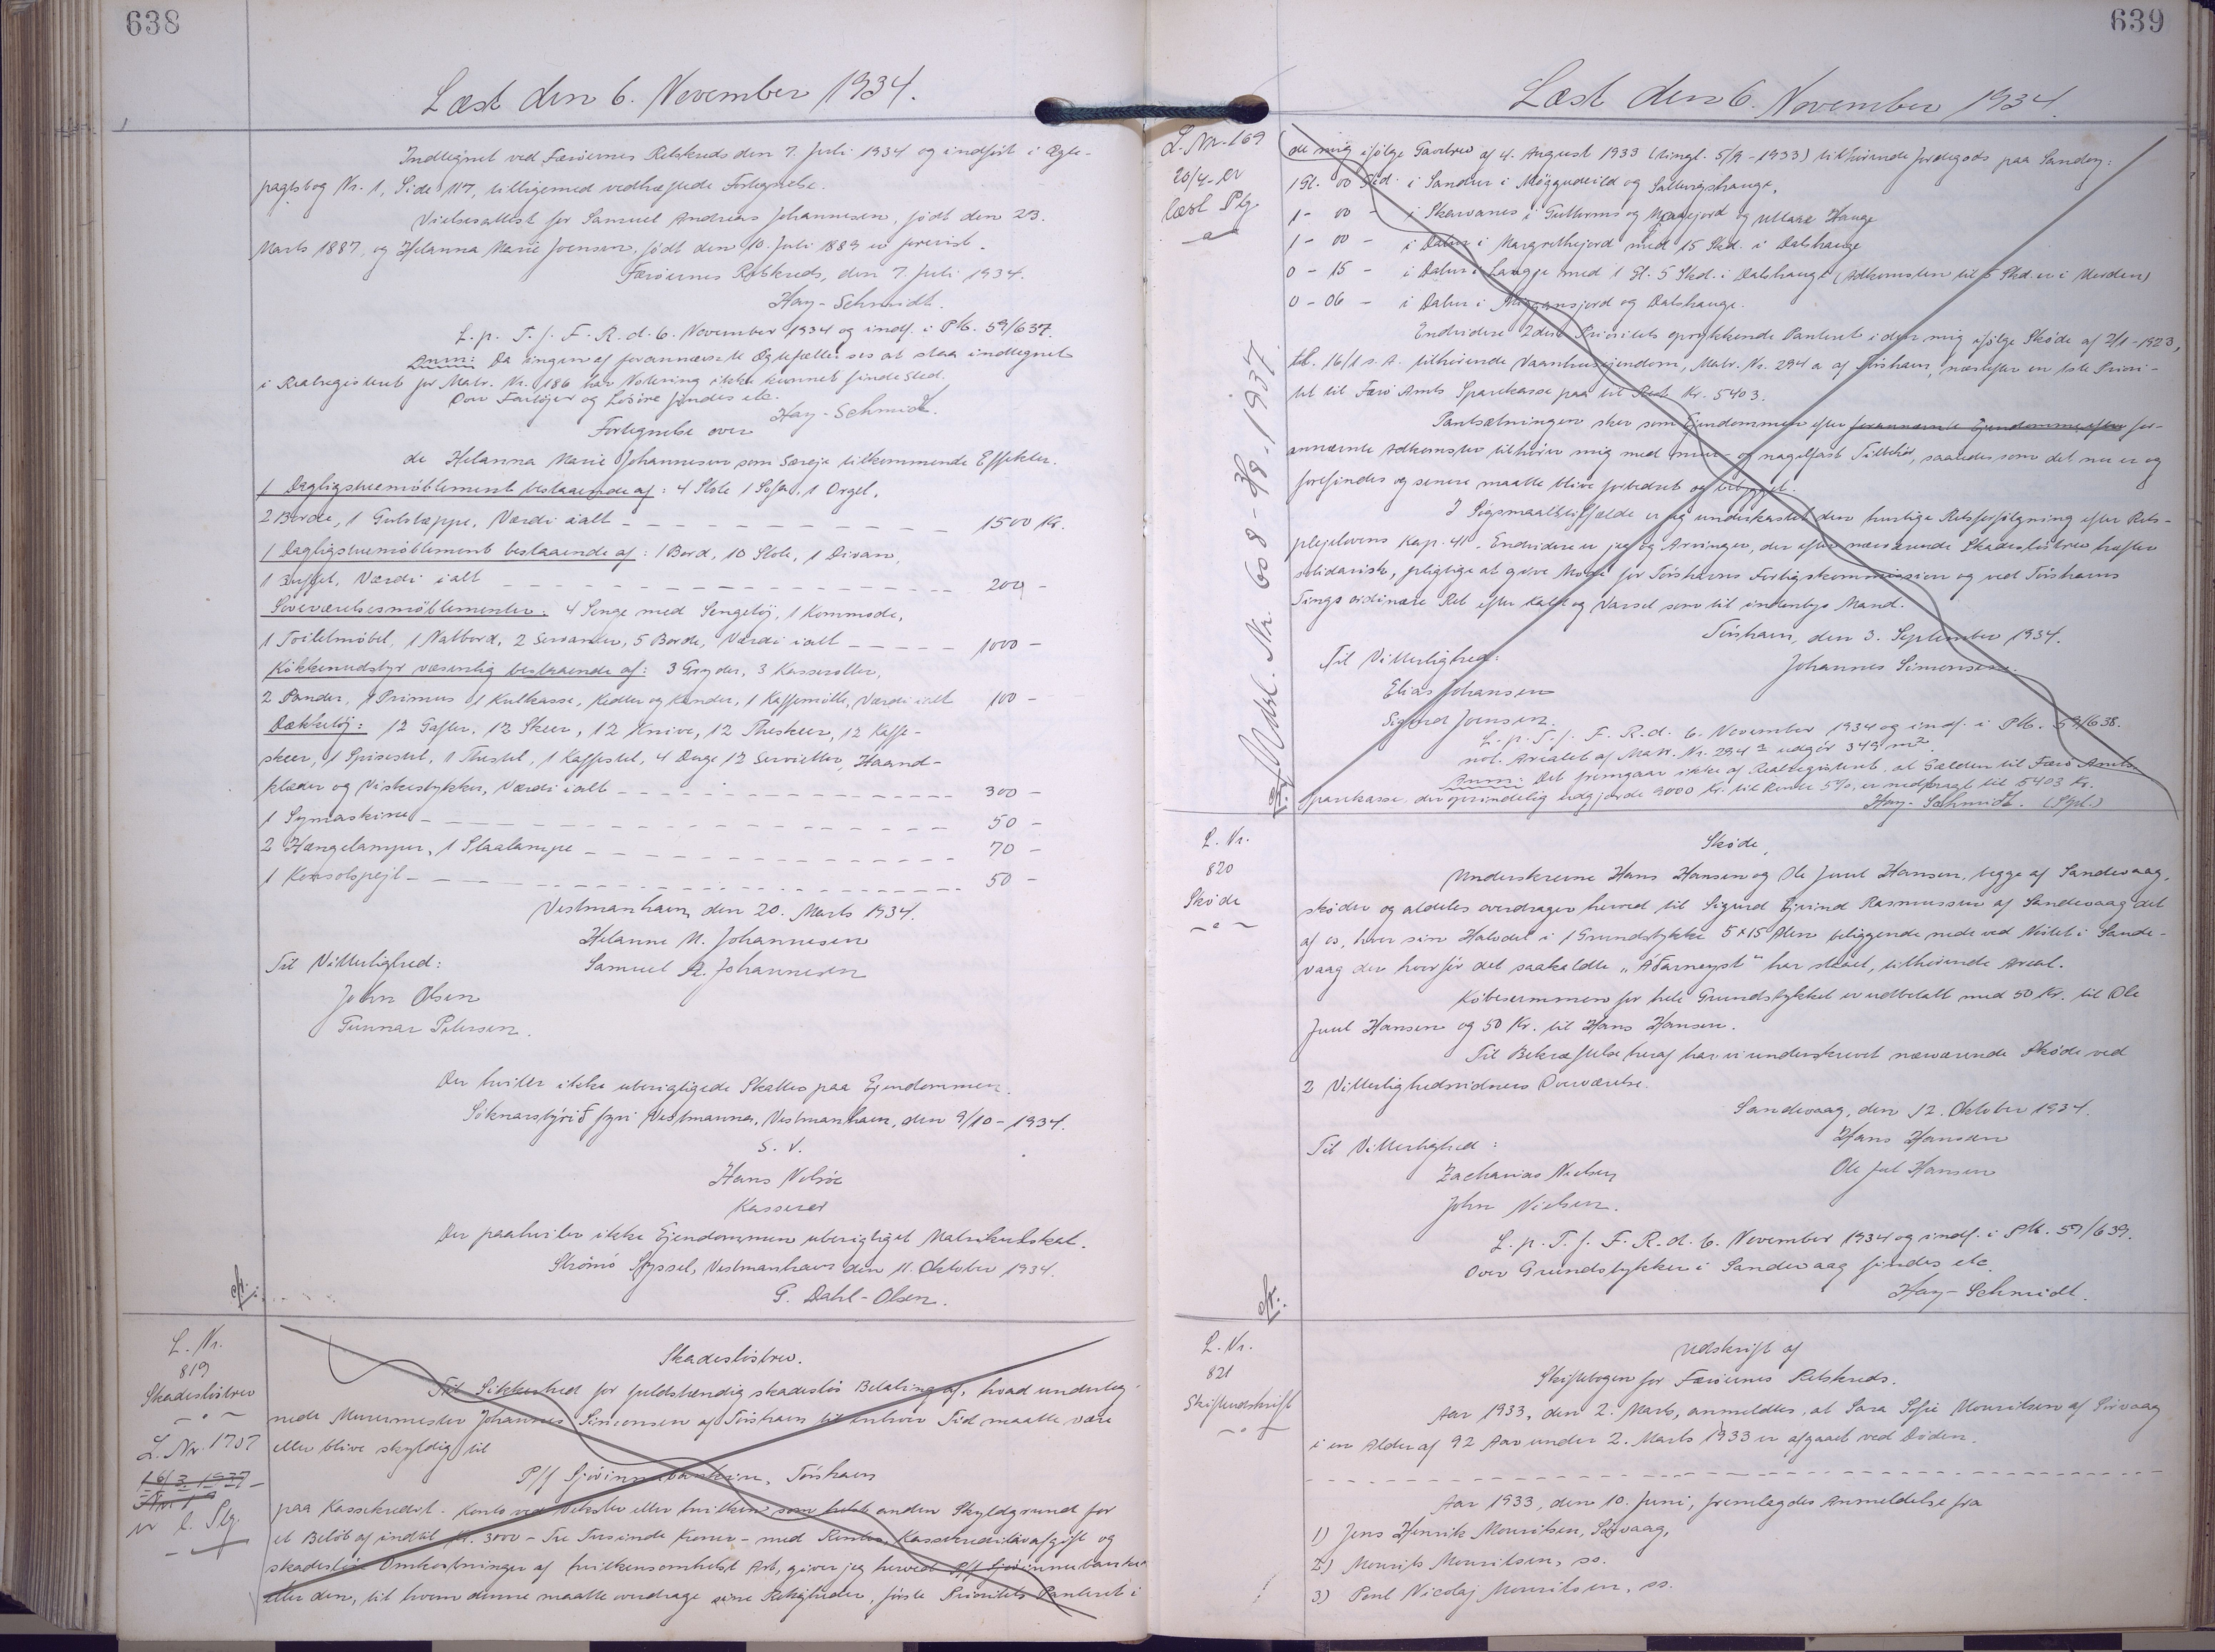 638
Læst den 6. November 1934.
Indtegnet ved Færöernes Retskreds den 7. Juli 1934 og indført i Ægte-
pagtsbog Nr. 1, Side 117, tilligemed vedhæftede Fortegnelse.
Vielsesattest for Samuel Andreas Johannesen, født den 23.
Marts 1887, og Helanna Marie Joensen, født den 10. Juli 1889 er forevist.
Færöernes Retskreds, den 7. Juli 1934.
Hay-Schmidt.
L. p. T. f. F. R. d. 6. November 1934 og indf. i PM. 59/637.
Anm: Da ingen af forannævnte Ægtefæller ses at staa indtegnet
i Realregisteret for Matr. Nr. 186 har Notering ikke kunnet finde Sted.
Over Fartöjer og Lösöre findes etc.
Hay-Schmidt.
Fortegnelse over
de Helanna Marie Johannesen som Særeje tilkommende Effekter.
1 Dagligstuemöblement bestaaende af: 4 Stole 1 Sofa, 1 Orgel,
2 Borde, 1 Gulvtæppe, Værdi ialt 1500 Kr.
1 Dagligstuemöblement bestaaende af: 1 Bord, 10 Stole, 1 Divan,
1 Buffet, Værdi ialt 200 -
Soveværelsesmöblementer: 4 Senge med Sengetöj, 1 Kommode,
1 Toiletmöbel, 1 Natbord, 2 Servanter, 5 Borde, Værdi ialt 1000 -
Køkkenudstyr væsentlig bestaaende af: 3 Gryder, 3 Kasseroller,
2 Pander, 1 Primus 1 Kulkasse, Kedler og Kander, 1 Kaffemölle, Værdi ialt 100 -
Dækketöj: 12 Gafler, 12 Skeer, 12 Knive, 12 Theskeer, 12 Kaffe-
skeer, 1 Spisestel, 1 Thestel, 1 Kaffestel, 4 Duge 12 Servietter, Haand-
klæder og Viskestykker, Værdi ialt 300 -
1 Symaskine 50 -
2 Hængelamper, 1 Staalampe 70 -
1 Konsolspejl 50 -
Vestmanhavn, den 20. Marts 1934.
Helanne M. Johannesen
Til Vitterlighed: Samuel A. Johannesen
John Olsen
Gunnar Petersen.
Der hviler ikke uberigtigede Skatter paa Ejendommen.
Sóknarstýrið fyri Vestmanna, Vestmanhavn, den 9/10-1934.
S. V.
Hans Nolsöe
Kasserer
Der paahviler ikke Ejendommen uberigtiget Matrikulskat.
Strömö Syssel, Vestmanhavn den 11. Oktober 1934.
G. Dahl-Olsen.
L. Nr.
819
Skadeslösbrev
L. Nr. 1707
16/3 1937
Skadeslösbrev.
Til Sikkerhed for fuldstændig skadeslös Betaling af, hvad underteg-
nede Murermester Johannes Simonsen af Tórshavn til enhver Tid maatte være
eller blive skyldig til
P/f Sjóvinnubankin, Tórshavn
paa Kassekredit-Konto ved Veksler eller hvilken som helst anden Skyldgrund for
et Belöb af indtil Kr. 3000 - Tre Tusinde Kroner - med Renter, Kassekreditavgift og
skadeslöse Omkostninger af hvilkensomhelst Art, giver jeg herved P/f Sjóvinnubankin
eller den, til hvem denne maatte overdrage sine Rettigheder, förste Prioritets Panteret i
639
Læst den 6. November 1934.
L. Nr. 169
20/4-
læst
de mig ifölge Gavebrev af 4. August 1933 (tingl. 5/9-1933) tilhörende Jordegods paa Sandoy:
1 Gl. 00 Skd. i Sandur i Møggudeild og Saltvigshauge,
1 - 00 - i Skarvanes i Gutthorms og Maajord og uttara Hauge
1 - 00 - i Dalur i Margrethejord med 15 Skd. i Dalshauge
0 - 15 - i Dalur i Langgje med 1 Gl. 5 Skd. i Dalshauge (Adkomsten til 5 Skd. er i Orden)
0 - 06 - i Dalur i Dalshauge.
Endvidere 2den Prioritets oprykkende Panteret i den mig ifölge Sköde af 2/1-1923,
tl. 16/1 s. A. tilhörende Vaanhusejendom, Matr. Nr. 294 a af Tórshavn, næstefter en 1ste Priori-
tet til Færö Amts Sparekasse paa til Rest Kr. 5403.
Pantsætningen sker som Ejendommen efter forannævnte Ejendomme efter for-
annævnte Adkomster tilhörer mig med mur- og nagelfast Tilbehör, saaledes som det nu er og
forefindes og senere maatte blive forbedret og bebygget.
I Søgsmaalstilfælde er jeg underkastet den hurtige Retsforfölgning efter Rets-
plejelovens Kap. 41. Endvidere er jeg og Arvinger, der efter nærværende Skadeslösbrev hæfter
solidarisk, pligtige at give Möde for Tórshavns Forligskommission og ved Tórshavns
Tings ordinære Ret efter Kald og Varsel som til indenbys Mand.
Tórshavn, den 3. September 1934.
Til Vitterlighed: Johannes Simonsen.
Elias Johansen
Sigurd Joensen.
L. p. T. f. F. R. d. 6. November 1934 og indf. i PM. 59/638.
not. Arealet af Matr. Nr. 294 a udgör 349 m2.
Anm: Det fremgaar ikke af Realregisteret, at Gælden til Færö Amts
Sparekasse, der oprindelig udgjorde 9000 Kr. til Rente 5%, er nedbragt til 5403 Kr.
Hay-Schmidt.
Udsl. Nr. 608 - 1937
L. Nr.
820
Sköde
Sköde.
Underskrevne Hans Hansen og Ole Juul Hansen, begge af Sandevaag,
sköder og aldeles overdrager herved til Sigurd Ejvind Rasmussen af Sandevaag det
af os, hver sin Halvdel i 1 Grundstykke 5x15 Alen beliggende nede ved Nöstet i Sande-
vaag der hvor för det saakaldte „Aðarneyst“ har staaet, tilhörende Areal.
Købesummen for hele Grundstykket er udbetalt med 50 Kr. til Ole
Juul Hansen og 50 Kr. til Hans Hansen.
Til Bekræftelse heraf har vi underskrevet nærværende Sköde ved
2 Vitterlighedsvidners Overværelse.
Sandevaag, den 12. Oktober 1934.
Til Vitterlighed: Hans Hansen
Zacharias Nielsen Ole Jul Hansen
John Nielsen.
L. p. T. f. F. R. d. 6. November 1934 og indf. i PM. 59/639.
Over Grundstykker i Sandevaag findes etc.
Hay-Schmidt.
L. Nr.
821
Skifteudskrift
Udskrift af
Skiftebogen for Færöernes Retskreds.
Aar 1933, den 2. Marts, anmeldtes, at Sara Sofie Mouritsen af Sörvaag
i en Alder af 92 Aar under 2. Marts 1933 er afgaaet ved Döden.
Aar 1933, den 10. Juni, fremlagdes Anmeldelse fra
1) Jens Henrik Mouritsen, Sörvaag,
2) Mourits Mouritsen, ss.
3) Poul Nicolaj Mouritsen, ss.